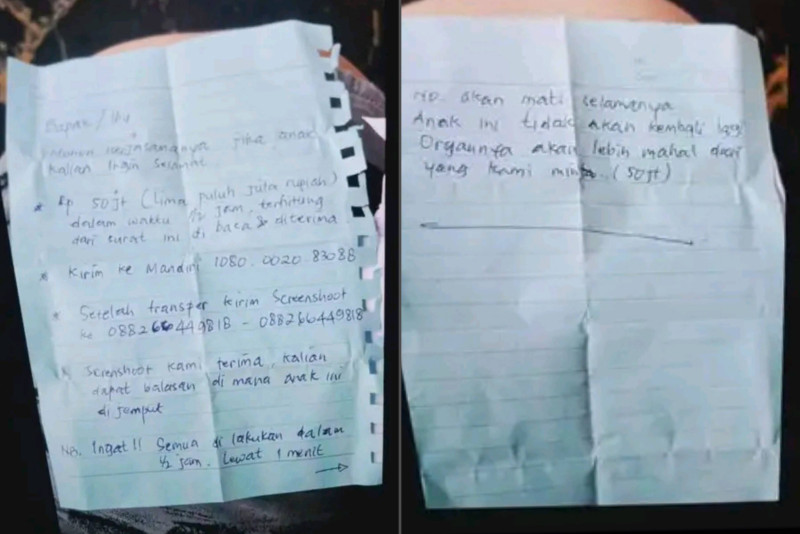 Bapak / Ibu
Mohon kerjasamanya jika anak
kalian ingin selamat
* Rp 50jt (Lima puluh juta rupiah)
dalam waktu 1/2 jam, terhitung
dari surat ini di baca & diterima
* Kirim ke Mandiri 1080.0020.83088
* Setelah transfer kirim Screenshoot
ke 088266449818 - 088266449818
* Screnshoot kami terima, kalian
dapat balasan di mana anak ini
di jemput
NB. Ingat!! Semua di lakukan dalam
1/2 jam. Lewat 1 menit
No. akan mati selamanya
Anak ini tidak akan kembali lagi
Organnya akan lebih mahal dari
yang kami minta. (50jt)